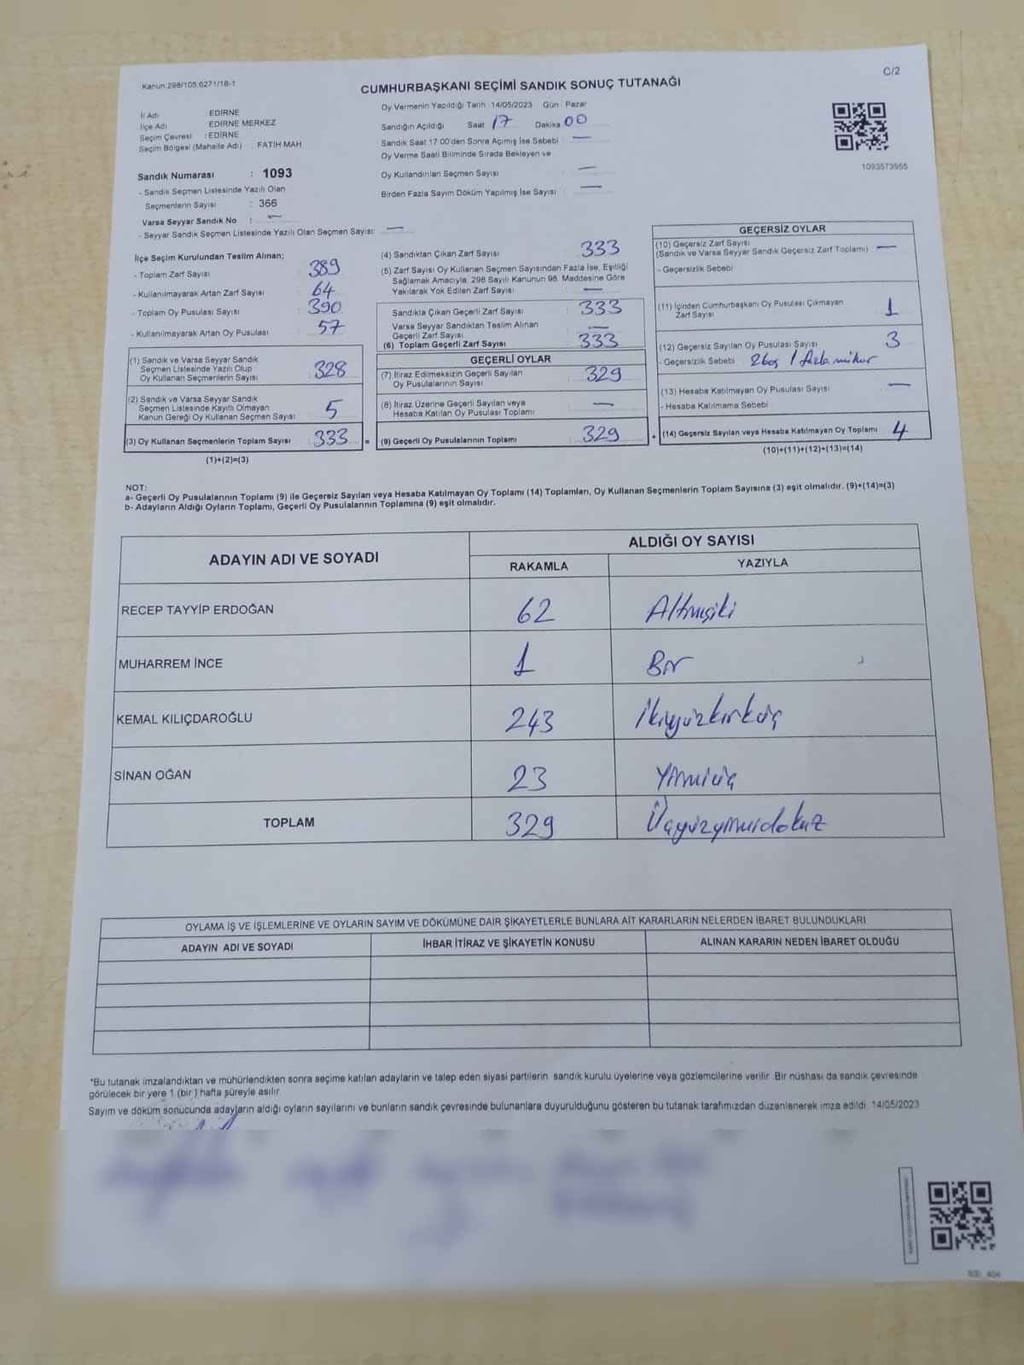 Kanun:298/105.6271/18-1
C/2
CUMHURBAŞKANI SEÇİMİ SANDIK SONUÇ TUTANAĞI
İl Adı : EDİRNE
İlçe Adı : EDİRNE MERKEZ
Seçim Çevresi : EDİRNE
Seçim Bölgesi (Mahalle Adı) : FATİH MAH
Oy Vermenin Yapıldığı Tarih 14/05/2023 Gün : Pazar
Sandığın Açıldığı Saat 17 Dakika 00
Sandık Saat 17:00'den Sonra Açılmış İse Sebebi —
Oy Verme Saati Bitiminde Sırada Bekleyen ve
Oy Kullandırılan Seçmen Sayısı —
Birden Fazla Sayım Döküm Yapılmış İse Sayısı —
1093573955
Sandık Numarası : 1093
- Sandık Seçmen Listesinde Yazılı Olan
Seçmenlerin Sayısı : 366
Varsa Seyyar Sandık No : —
- Seyyar Sandık Seçmen Listesinde Yazılı Olan Seçmen Sayısı: —
İlçe Seçim Kurulundan Teslim Alınan;
- Toplam Zarf Sayısı 389
- Kullanılmayarak Artan Zarf Sayısı 64
- Toplam Oy Pusulası Sayısı 390
- Kullanılmayarak Artan Oy Pusulası 57
(1) Sandık ve Varsa Seyyar Sandık
Seçmen Listesinde Yazılı Olup
Oy Kullanan Seçmenlerin Sayısı 328
(2) Sandık ve Varsa Seyyar Sandık
Seçmen Listesinde Kayıtlı Olmayan
Kanun Gereği Oy Kullanan Seçmen Sayısı 5
(3) Oy Kullanan Seçmenlerin Toplam Sayısı 333 =
(1)+(2)=(3)
(4) Sandıktan Çıkan Zarf Sayısı 333
(5) Zarf Sayısı Oy Kullanan Seçmen Sayısından Fazla İse, Eşitliği
Sağlamak Amacıyla, 298 Sayılı Kanunun 98. Maddesine Göre
Yakılarak Yok Edilen Zarf Sayısı —
Sandıkta Çıkan Geçerli Zarf Sayısı 333
Varsa Seyyar Sandıktan Teslim Alınan
Geçerli Zarf Sayısı —
(6) Toplam Geçerli Zarf Sayısı 333
GEÇERLİ OYLAR
(7) İtiraz Edilmeksizin Geçerli Sayılan
Oy Pusulalarının Sayısı 329
(8) İtiraz Üzerine Geçerli Sayılan veya
Hesaba Katılan Oy Pusulası Toplamı —
(9) Geçerli Oy Pusulalarının Toplamı 329 +
GEÇERSİZ OYLAR
(10) Geçersiz Zarf Sayısı
(Sandık ve Varsa Seyyar Sandık Geçersiz Zarf Toplamı) —
- Geçersizlik Sebebi
(11) İçinden Cumhurbaşkanı Oy Pusulası Çıkmayan
Zarf Sayısı 1
(12) Geçersiz Sayılan Oy Pusulası Sayısı 3
- Geçersizlik Sebebi 2boş 1 fazla mühür
(13) Hesaba Katılmayan Oy Pusulası Sayısı —
- Hesaba Katılmama Sebebi
(14) Geçersiz Sayılan veya Hesaba Katılmayan Oy Toplamı 4
(10)+(11)+(12)+(13)=(14)
NOT:
a- Geçerli Oy Pusulalarının Toplamı (9) ile Geçersiz Sayılan veya Hesaba Katılmayan Oy Toplamı (14) Toplamları, Oy Kullanan Seçmenlerin Toplam Sayısına (3) eşit olmalıdır. (9)+(14)=(3)
b- Adayların Aldığı Oyların Toplamı, Geçerli Oy Pusulalarının Toplamına (9) eşit olmalıdır.
ADAYIN ADI VE SOYADI
ALDIĞI OY SAYISI
RAKAMLA YAZIYLA
RECEP TAYYİP ERDOĞAN 62 Altmışiki
MUHARREM İNCE 1 Bir
KEMAL KILIÇDAROĞLU 243 İkiyüzkırküç
SİNAN OĞAN 23 Yirmiüç
TOPLAM 329 Üçyüzyirmidokuz
OYLAMA İŞ VE İŞLEMLERİNE VE OYLARIN SAYIM VE DÖKÜMÜNE DAİR ŞİKAYETLERLE BUNLARA AİT KARARLARIN NELERDEN İBARET BULUNDUKLARI
ADAYIN ADI VE SOYADI İHBAR İTİRAZ VE ŞİKAYETİN KONUSU ALINAN KARARIN NEDEN İBARET OLDUĞU
*Bu tutanak imzalandıktan ve mühürlendikten sonra seçime katılan adayların ve talep eden siyasi partilerin sandık kurulu üyelerine veya gözlemcilerine verilir. Bir nüshası da sandık çevresinde
görülecek bir yere 1 (bir) hafta süreyle asılır
Sayım ve döküm sonucunda adayların aldığı oyların sayılarını ve bunların sandık çevresinde bulunanlara duyurulduğunu gösteren bu tutanak tarafımızdan düzenlenerek imza edildi. 14/05/2023